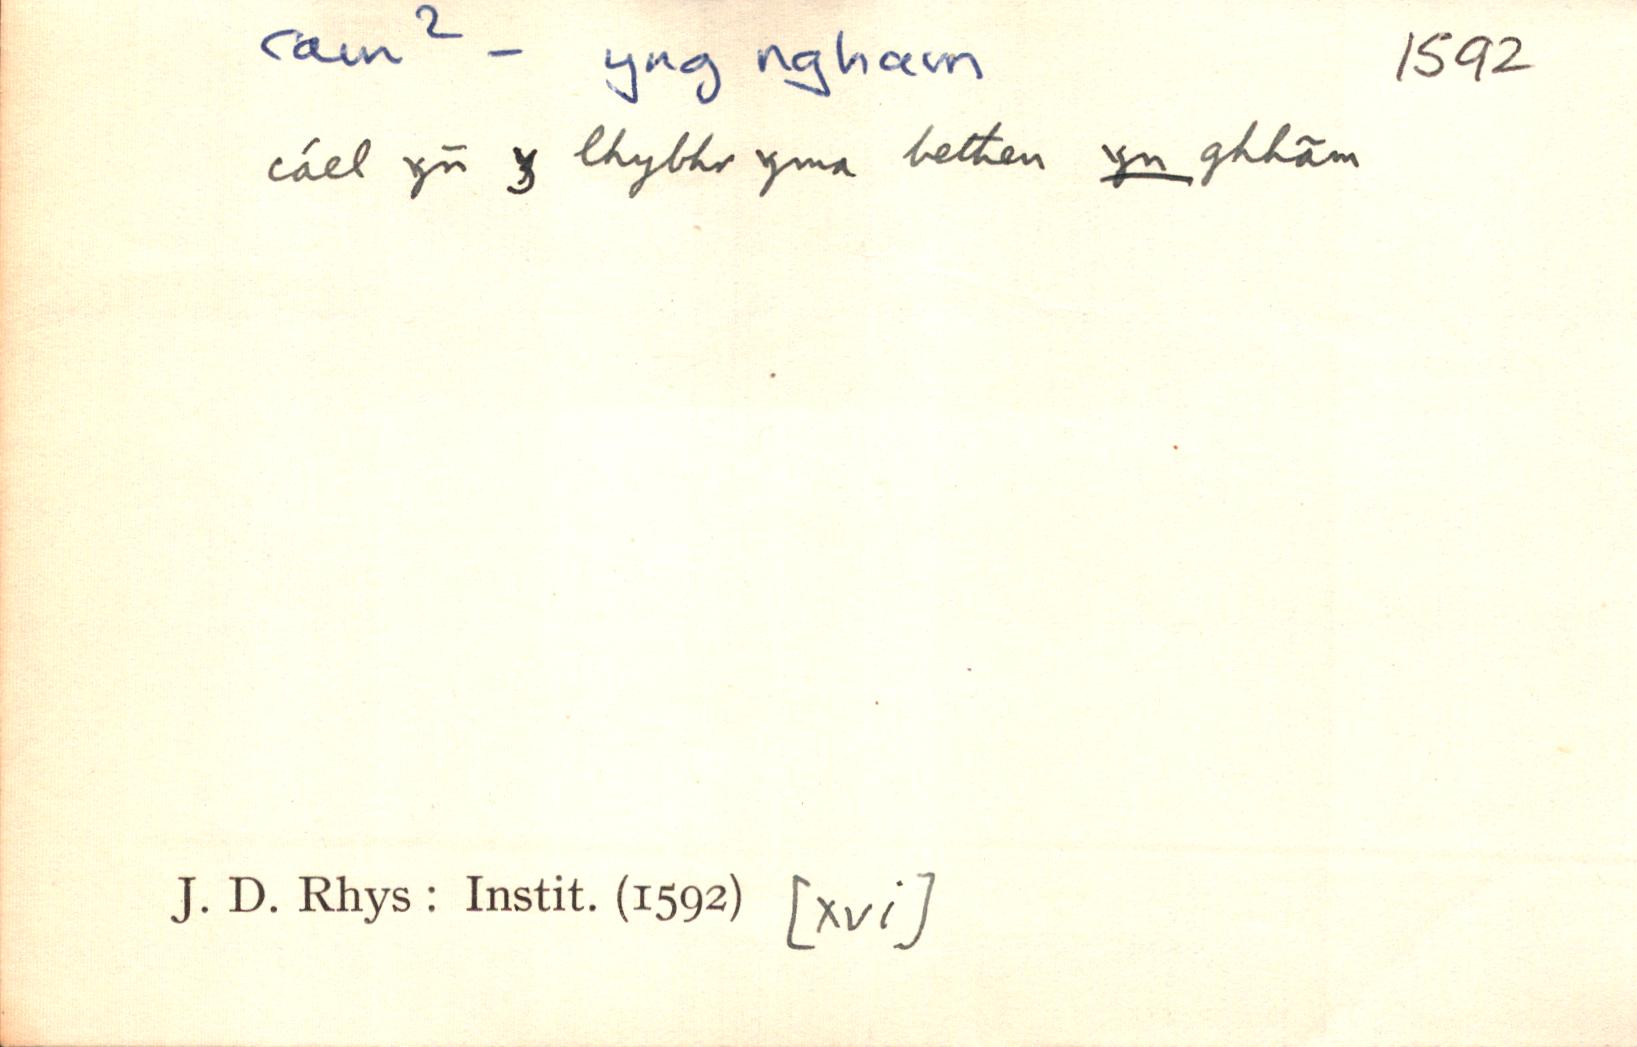 cam² – yng ngham 1592
cáel yn̄ y lhybhr yma bethen yn ghhãm
J. D. Rhys : Instit. (1592) [xvi]